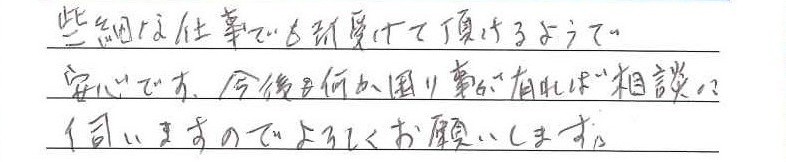 些細な仕事でも引受けて頂けるようで
安心です、今後も何か困り事が有れば相談に
伺いますのでよろしくお願いします。